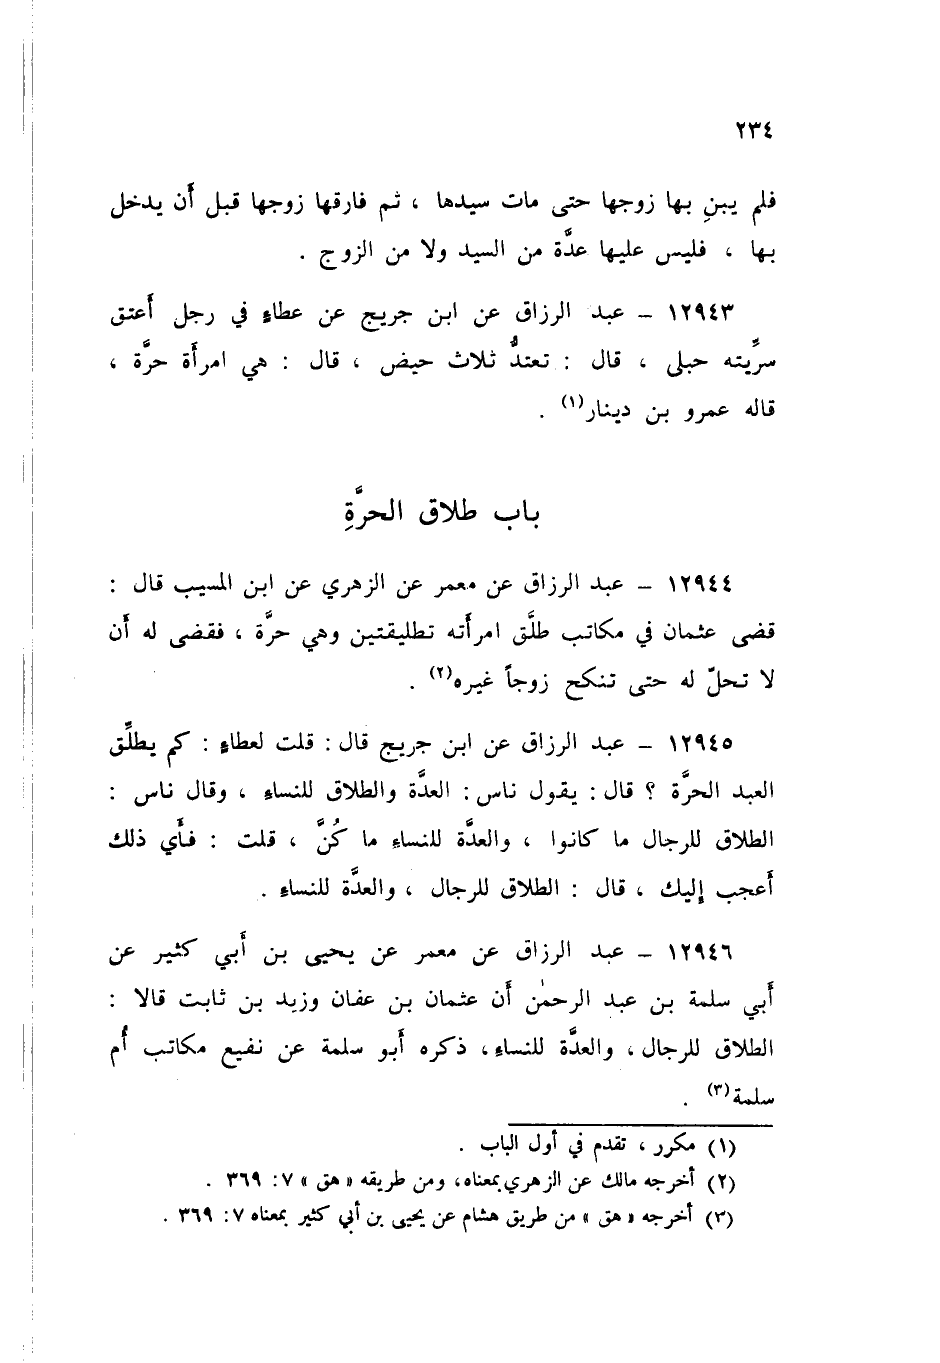 ٢٣٤
فلم يبنِ بها زوجها حتى مات سيدها ، ثم فارقها زوجها قبل أَن يدخل
بها ، فليس عليها عدَّة من السيد ولا من الزوج .
١٢٩٤٣ – عبد الرزاق عن ابن جريج عن عطاءٍ في رجل أَعتق
سرِّيته حبلى ، قال : تعتدُّ ثلاث حيض ، قال : هي امرأَة حرَّة ،
قاله عمرو بن دينار(١) .
باب طلاق الحرَّةِ
١٢٩٤٤ – عبد الرزاق عن معمر عن الزهري عن ابن المسيب قال :
قضى عثمان في مكاتب طلَّق امرأَته تطليقتين وهي حرَّة ، فقضى له أَن
لا تحلّ له حتى تنكح زوجاً غيره(٢) .
١٢٩٤٥ – عبد الرزاق عن ابن جريج قال : قلت لعطاءٍ : كم يطلِّق
العبد الحرَّة ؟ قال : يقول ناس : العدَّة والطلاق للنساء ، وقال ناس :
الطلاق للرجال ما كانوا ، والعدَّة للنساء ما كُنَّ ، قلت : فأَي ذلك
أَعجب إِليك ، قال : الطلاق للرجال ، والعدَّة للنساء .
١٢٩٤٦ – عبد الرزاق عن معمر عن يحيى بن أَبي كثير عن
أَبي سلمة بن عبد الرحمٰن أَن عثمان بن عفان وزيد بن ثابت قالا :
الطلاق للرجال ، والعدَّة للنساء ، ذكره أَبو سلمة عن نفيع مكاتب أُم
سلمة(٣) .
(١) مكرر ، تقدم في أول الباب .
(٢) أخرجه مالك عن الزهري بمعناه ، ومن طريقه « هق » ٧ : ٣٦٩ .
(٣) أخرجه « هق » من طريق هشام عن يحيى بن أبي كثير بمعناه ٧ : ٣٦٩ .